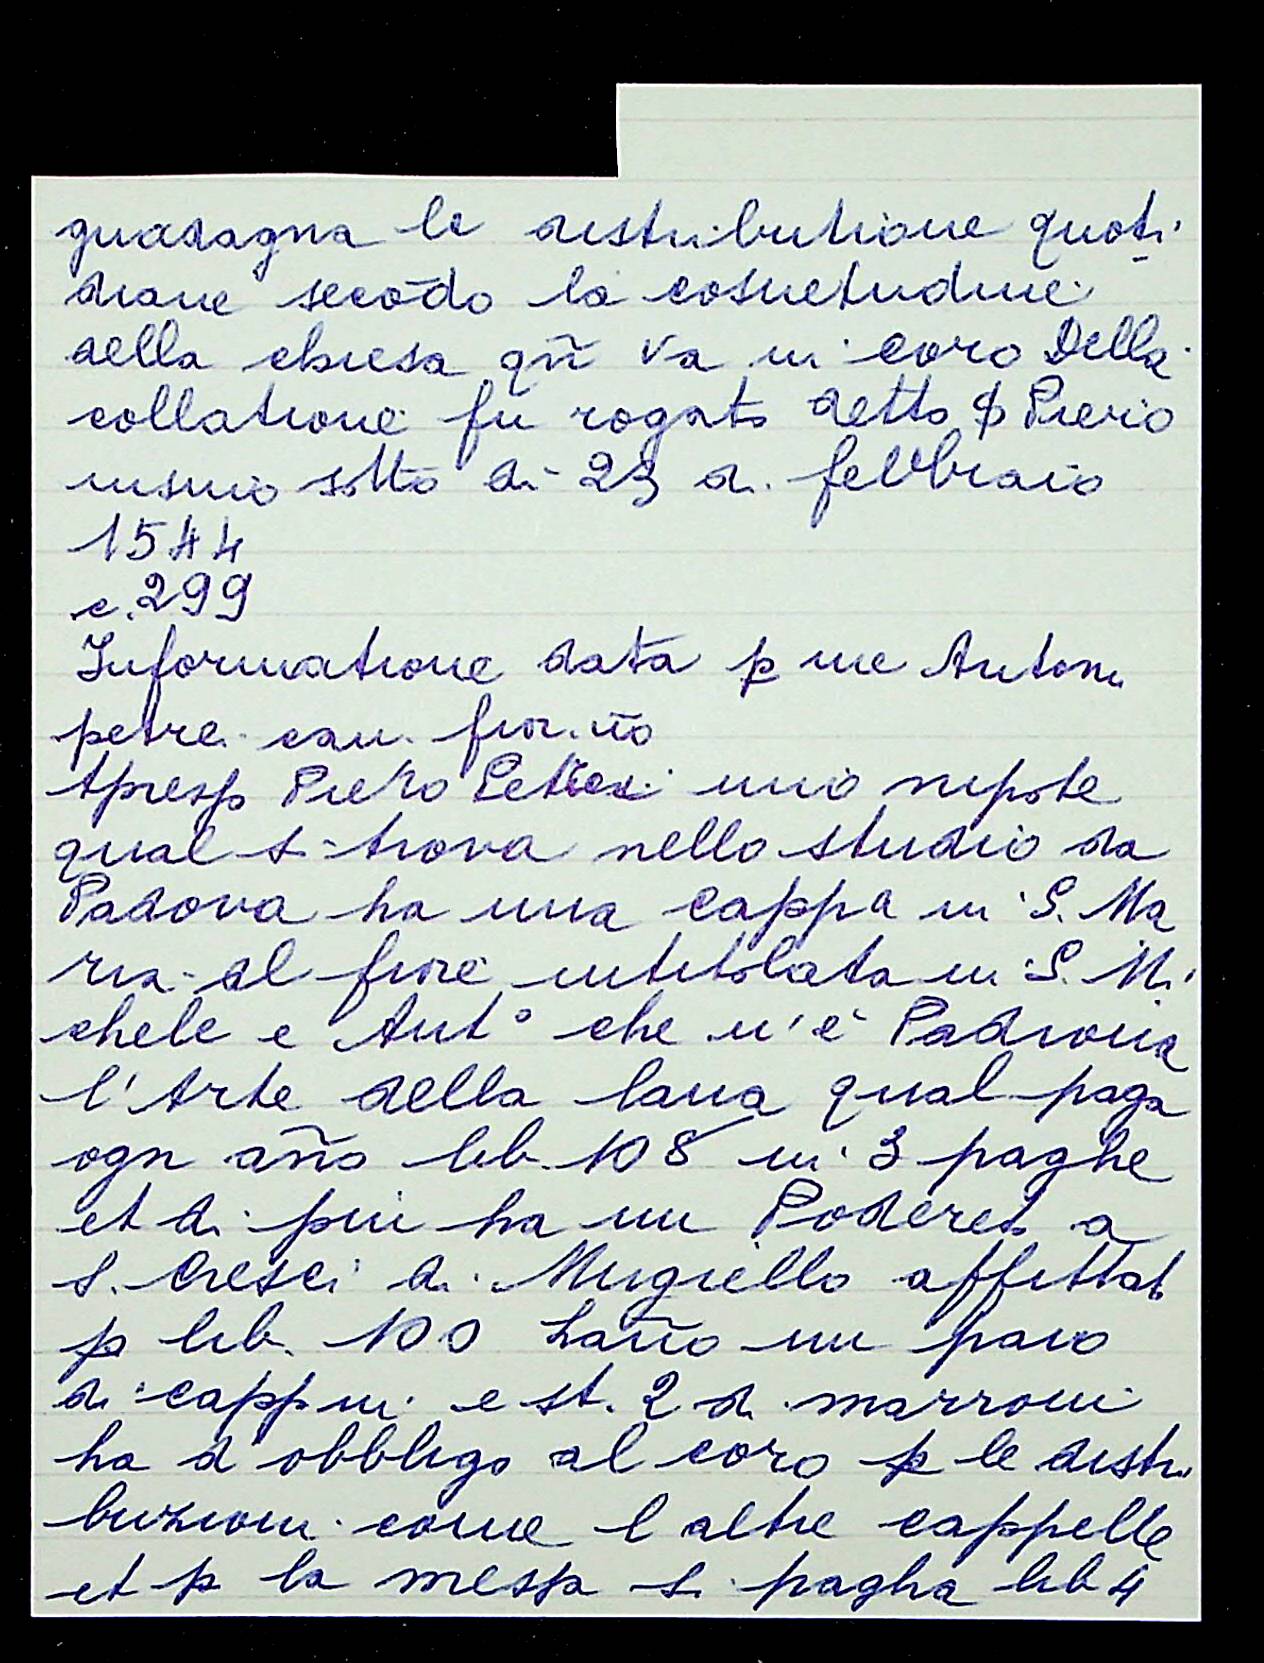 guadagna le distributione quoti
diane secōdo la cosuetudine
della chiesa qñ va in coro Della
collatione fu rogato detto Piero
sotto di 23 di febbraio
1544
c. 299
Informatione data p me Antoni
petre. can. fior.no
Apresso Piero mio nepote
qual si trova nello studio da
Padova ha una cappa in S. Ma
ria al fiore intitolata in S. Mi
chele e Ant° che n'è Padrona
l'Arte della lana qual paga
ogn año lib. 108 in 3 paghe
et di piu ha un Podereto a
S. Cresci di Mugiello affittato
p lib. 100 l'año un paro
di capponi e st. 2 di marroni
ha d'obbligo al coro p le distri
buzioni come l altre cappelle
et p la messa si pagha lib 4